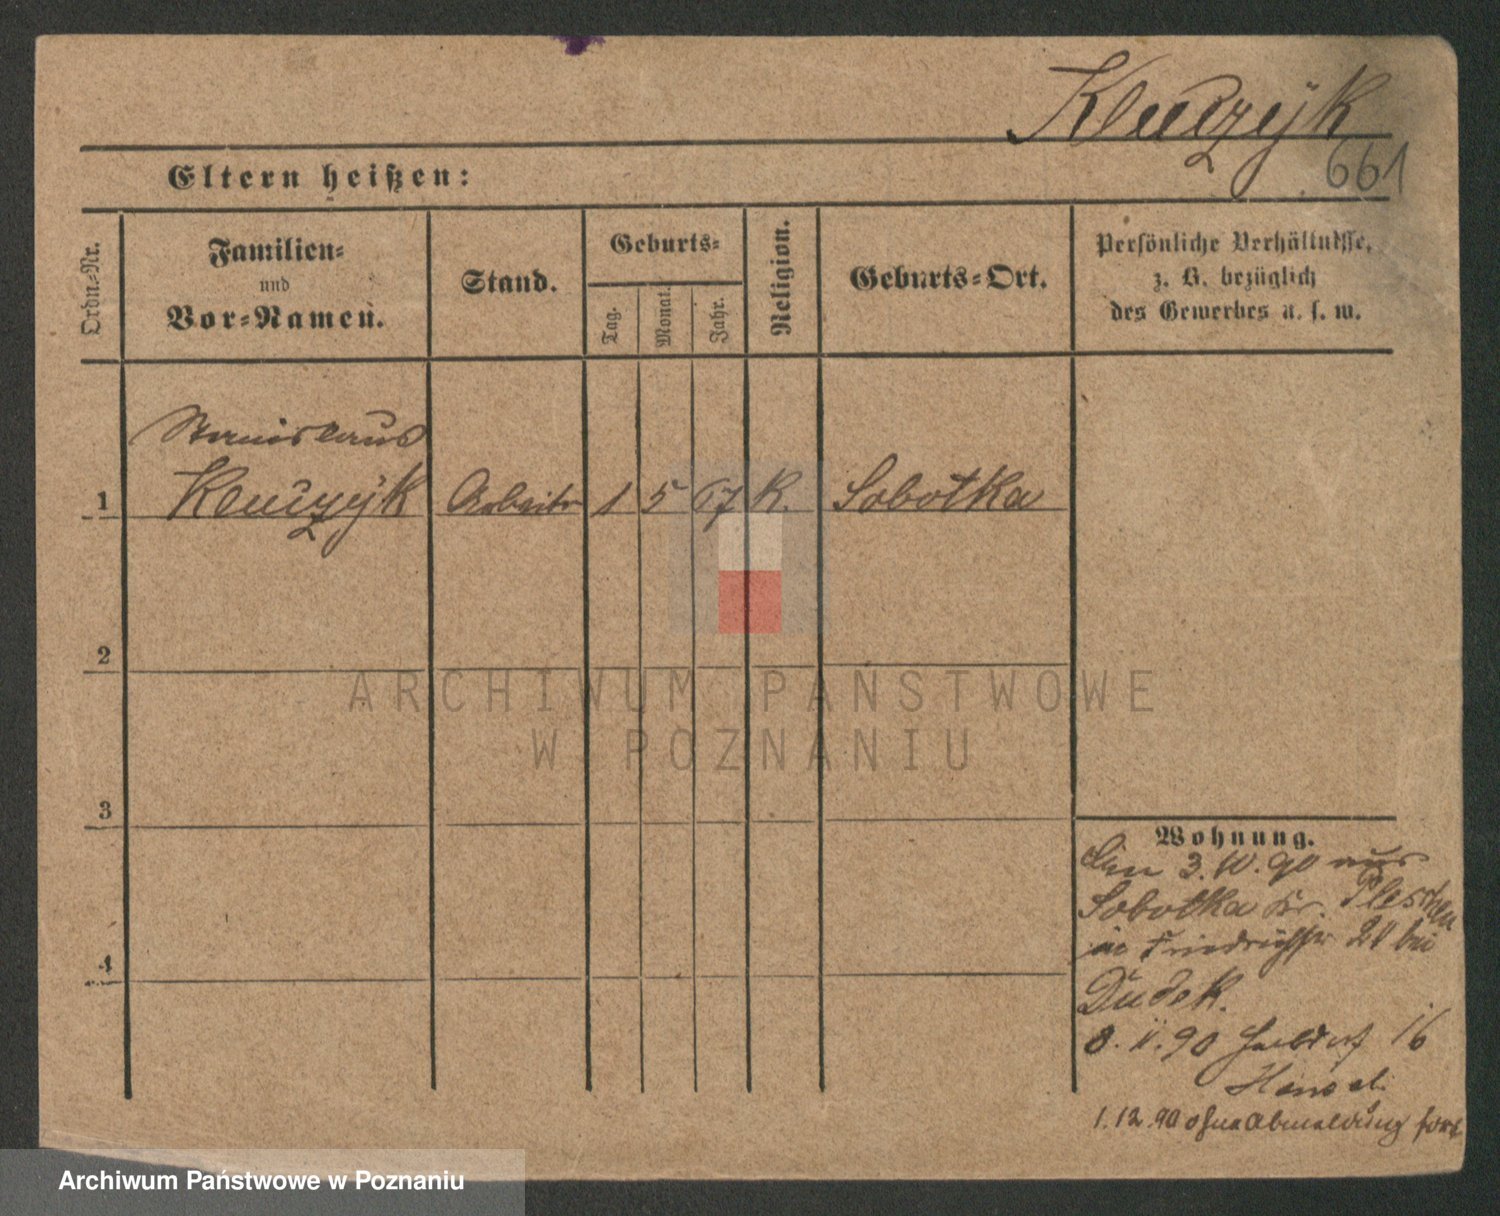 Kluczyk
661
Eltern heißen:
Ordn.-Nr.
Familien-
und
Vor-Namen.
Stand.
Geburts-
Tag.
Monat.
Jahr.
Religion.
Geburts-Ort.
Persönliche Verhältnisse,
z. B. bezüglich
des Gewerbes u. s. w.
Stanislaus
1 Kluczyk Arbeiter 1 5 67 K. Sobotka
2
3
4
Wohnung.
Den 3.10.90 aus
Sobotka Kr. Pleschen
in Friedrichstr 21 bei
Dudek.
8. 11. 90 16
1.12.90 ohne Abmeldung fort
ARCHIWUM PAŃSTWOWE
W POZNANIU
Archiwum Państwowe w Poznaniu